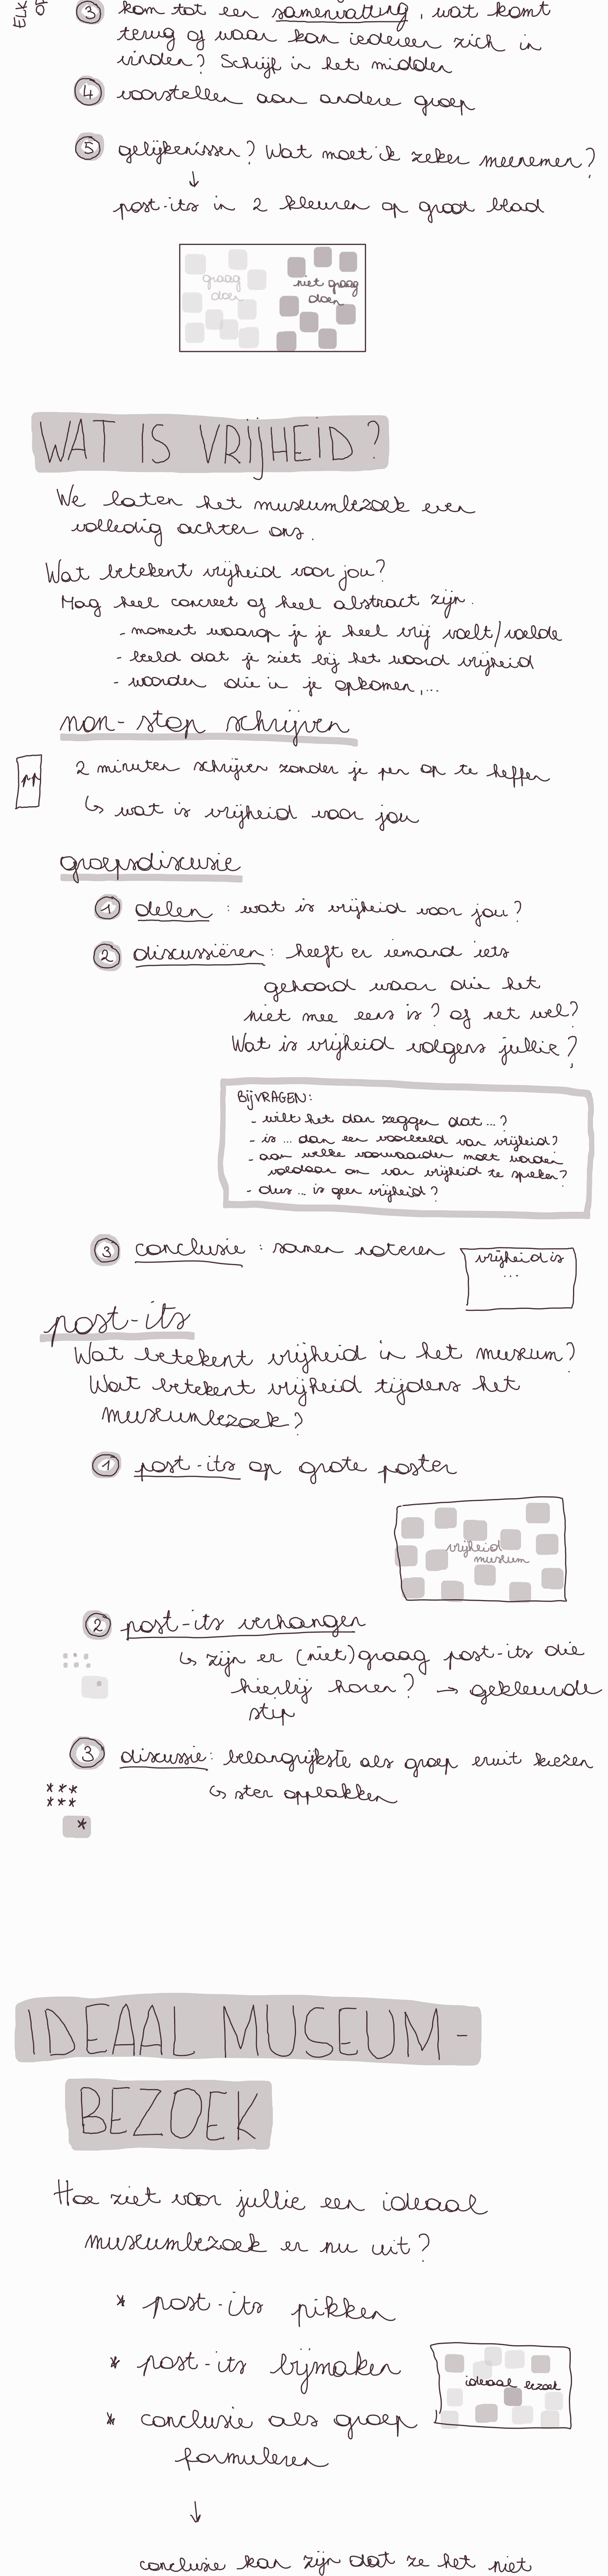 ELK
③ kom tot een samenvatting, wat komt
terug of waar kan iedereen zich in
vinden? Schrijf in het midden
④ voorstellen aan andere groep
⑤ gelijkenissen? Wat moet ik zeker meenemen?
↓
post-its in 2 kleuren op groot blad
graag
doen
niet graag
doen
WAT IS VRIJHEID?
We laten het museumbezoek even
volledig achter ons.
Wat betekent vrijheid voor jou?
Mag heel concreet of heel abstract zijn.
- moment waarop je je heel vrij voelt/voelde
- beeld dat je ziet bij het woord vrijheid
- woorden die in je opkomen,...
non-stop schrijven
2 minuten schrijven zonder je pen op te heffen
↳ wat is vrijheid voor jou
groepsdiscussie
① delen : wat is vrijheid voor jou?
② discussiëren: heeft er iemand iets
gehoord waar die het
niet mee eens is? of net wel?
Wat is vrijheid volgens jullie?
BIJVRAGEN:
- wilt het dan zeggen dat ...?
- is ... dan een voorbeeld van vrijheid?
- aan welke voorwaarden moet worden
voldaan om van vrijheid te spreken?
- dus ... is geen vrijheid?
③ conclusie : samen noteren
vrijheid is
...
post-its
Wat betekent vrijheid in het museum?
Wat betekent vrijheid tijdens het
museumbezoek?
① post-its op grote poster
vrijheid
museum
② post-its verhangen
↳ zijn er (niet) graag post-its die
hierbij horen? → gekleurde
stip
③ discussie: belangrijkste als groep eruit kiezen
↳ ster opplakken
IDEAAL MUSEUM-
BEZOEK
Hoe ziet voor jullie een ideaal
museumbezoek er nu uit?
* post-its pikken
* post-its bijmaken
ideaal bezoek
* conclusie als groep
formuleren
↓
conclusie kan zijn dat ze het niet